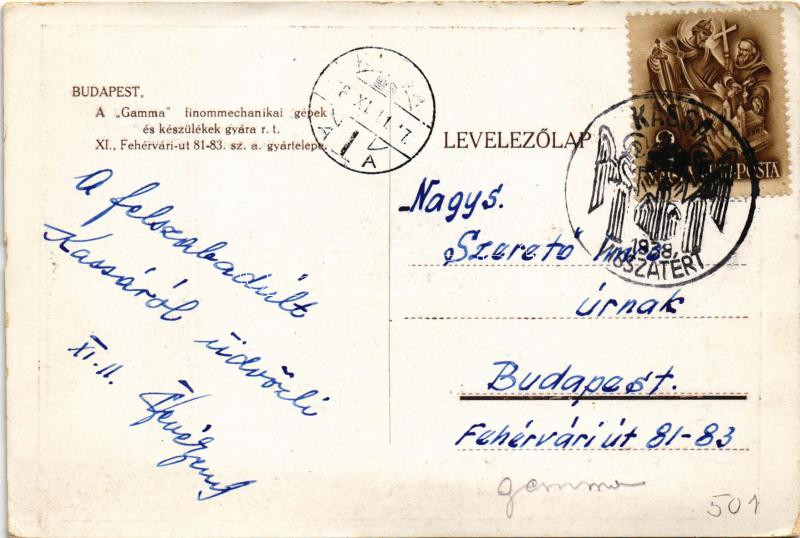 BUDAPEST,
A „Gamma" finommechanikai gépek
és készülékek gyára r. t.
XI., Fehérvári-ut 81-83. sz. a. gyártelepe.
A felszabadúlt
Kassáról üdvözli
XI. 11.
LEVELEZŐLAP
KASSA
1938.
VISSZATÉRT
POSTA
Nagys.
Szerető Imre
úrnak
Budapest.
Fehérvári út 81-83
gamma
501